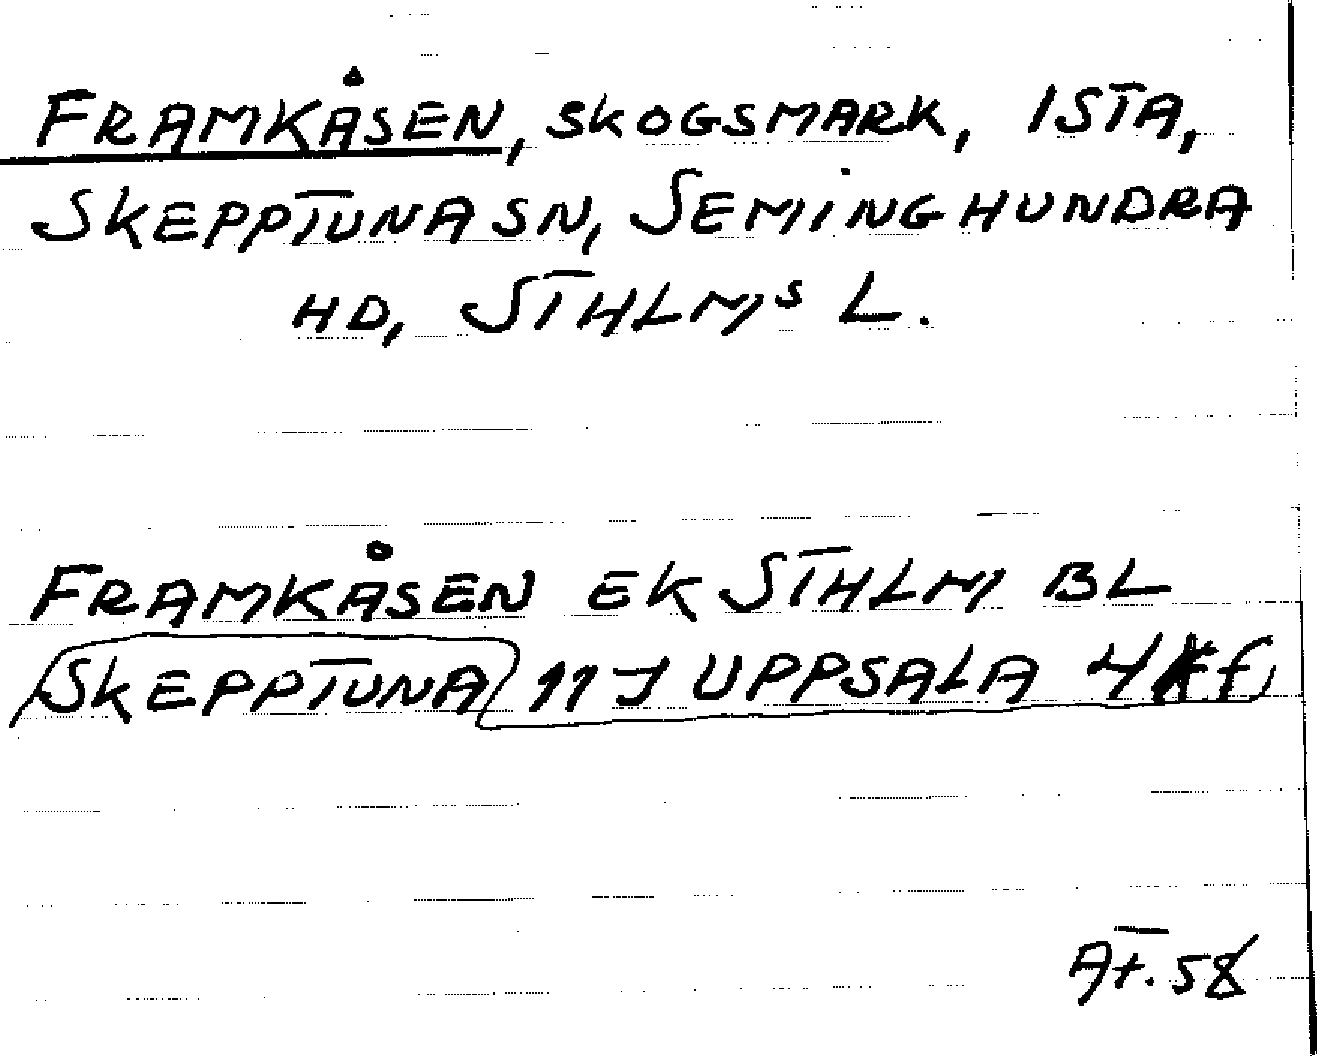 FRAMKÅSEN, SKOGSMARK, ISTA,
SKEPPTUNA SN, SEMINGHUNDRA
HD, STHLMS L.
FRAMKÅSEN EK STHLM BL
SKEPPTUNA 11J UPPSALA 4 f
AT. 58